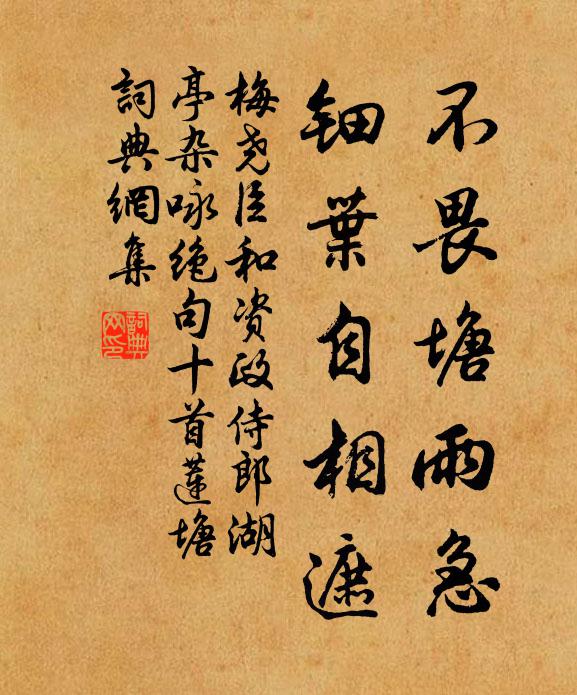 不畏塘雨急
钿葉自相遮
梅尧臣和资政侍郎湖
亭杂咏绝句十首蓮塘
詞典網集
詞典
网印